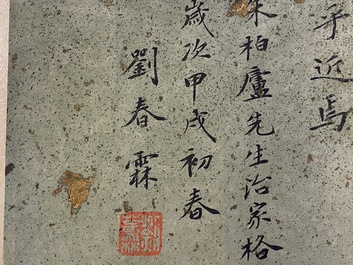 乎近焉
朱柏廬先生治家格
歲次甲戌初春
劉春霖